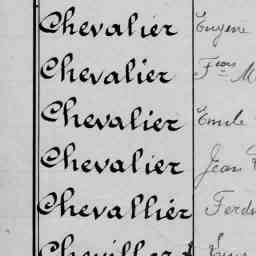 Chevalier Eugène
Chevalier Fçois M
Chevalier Emile
Chevalier Jean
Chevallier Ferd